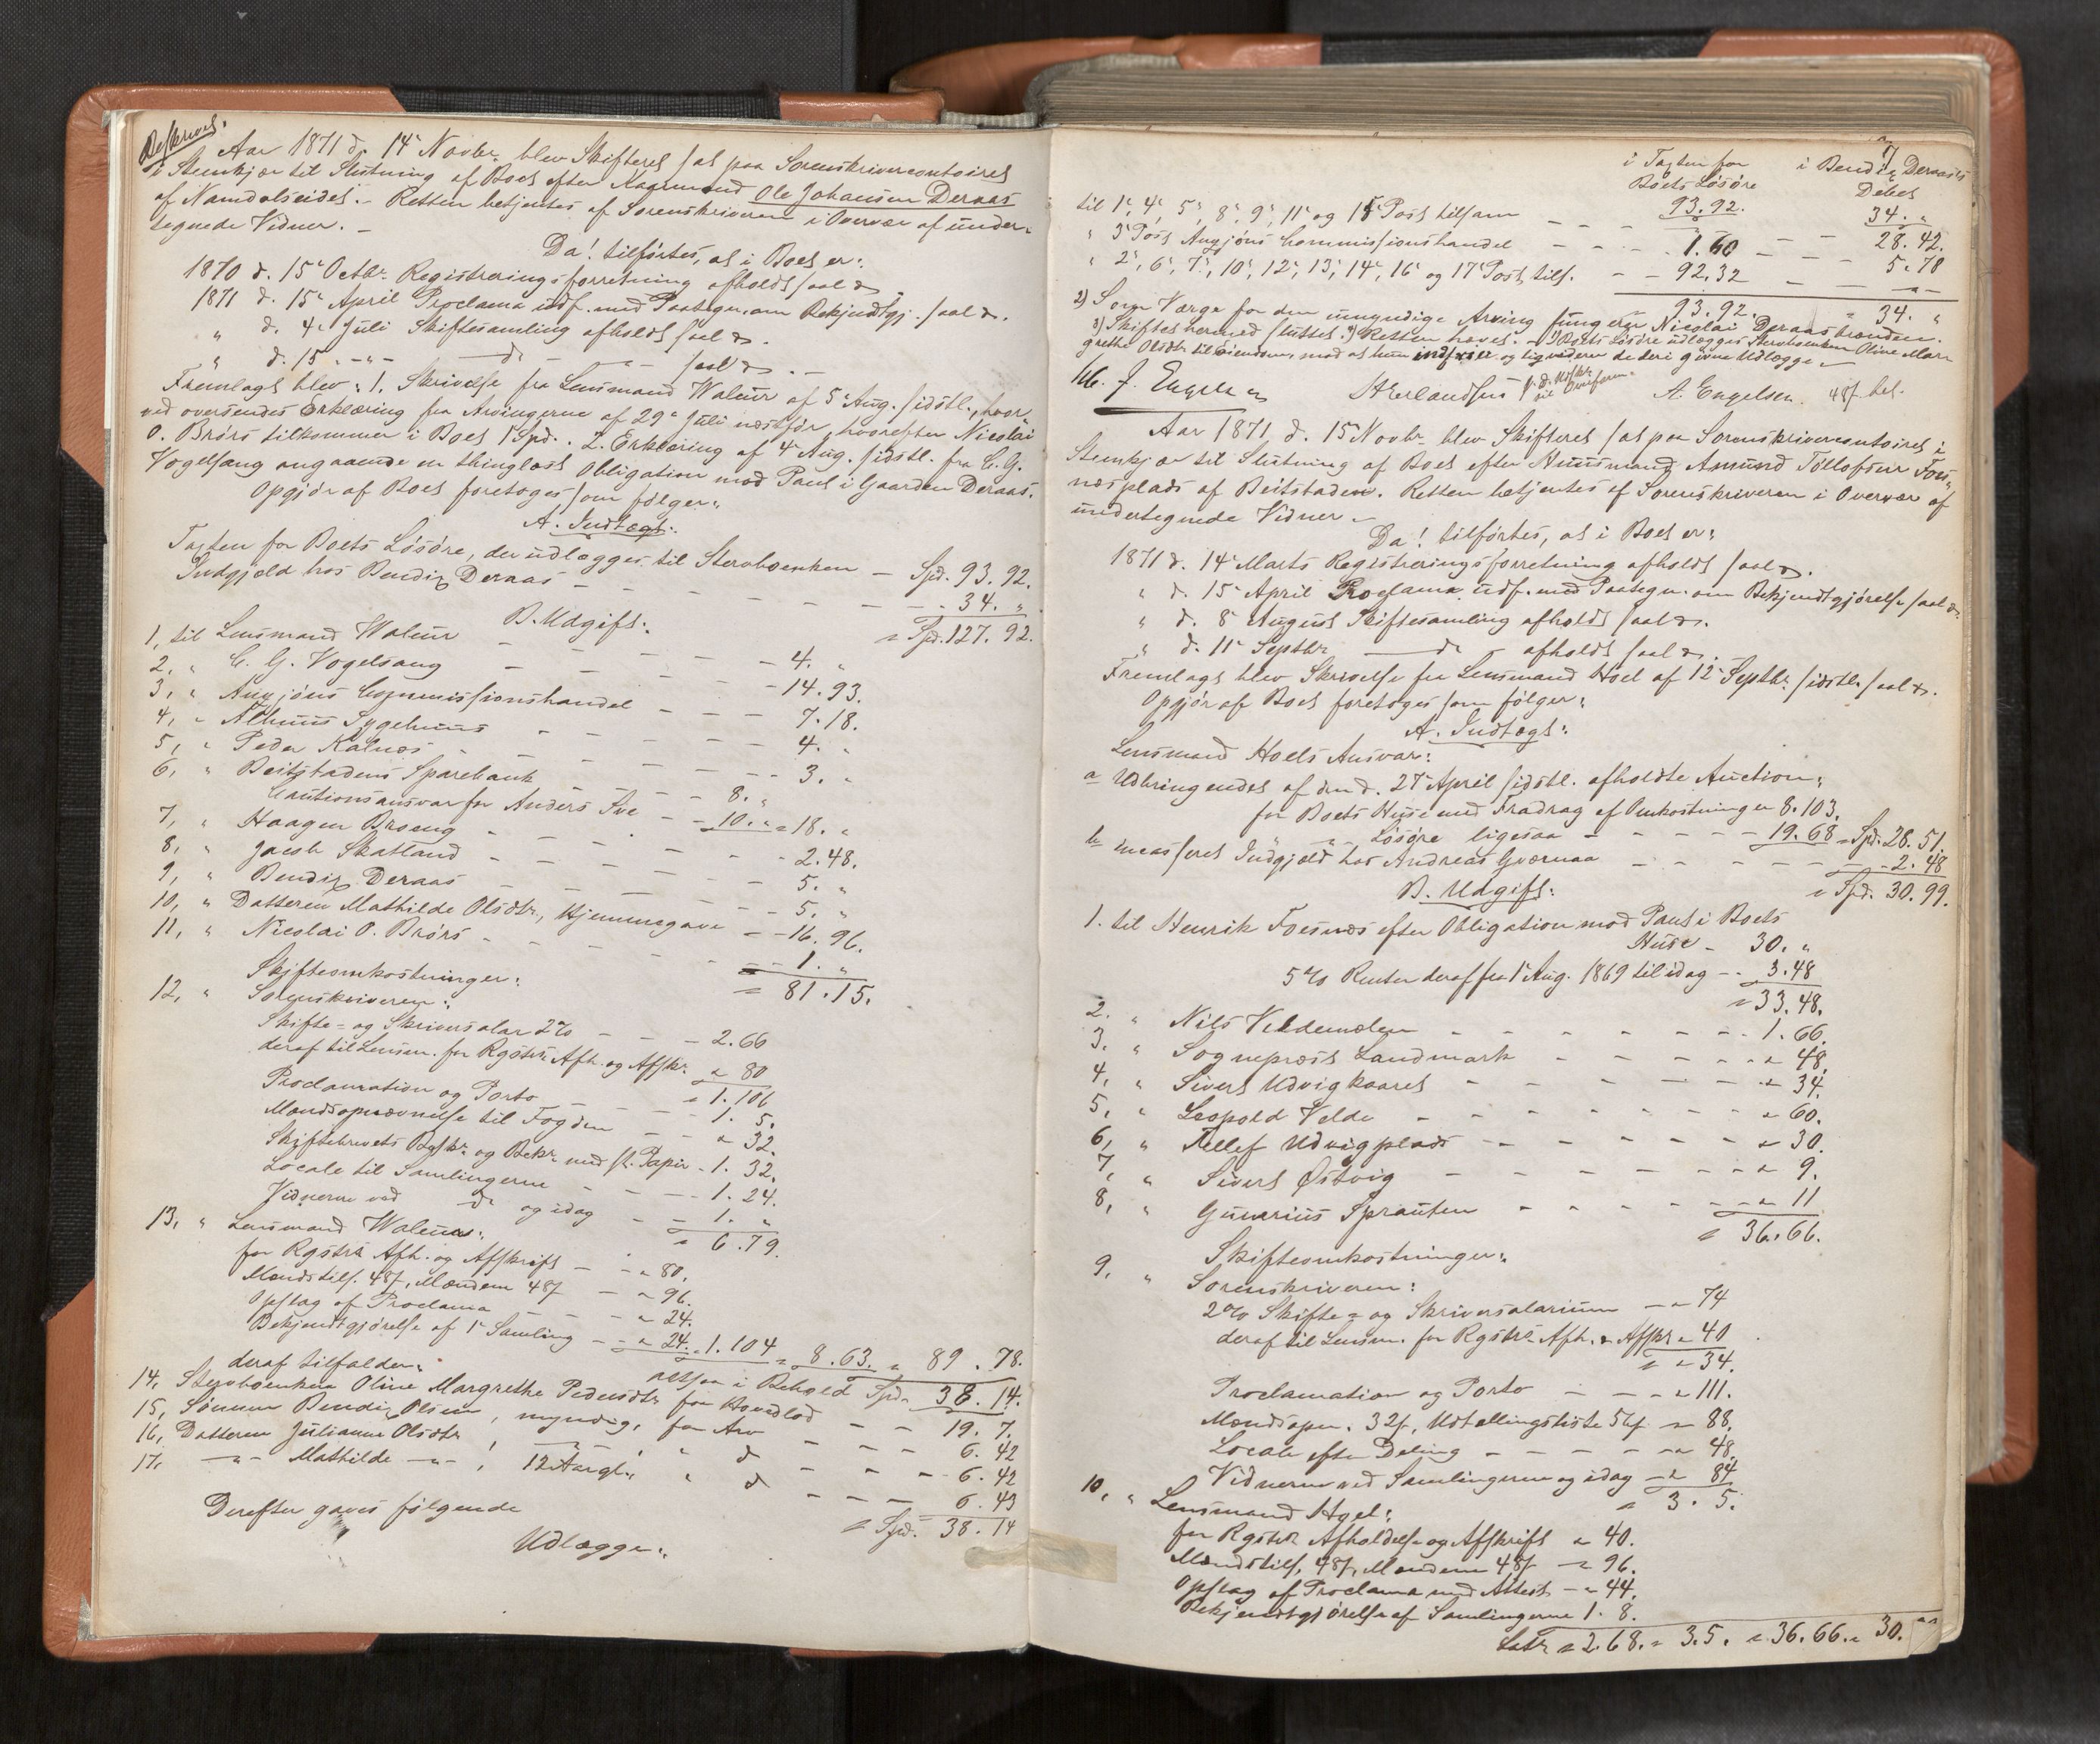 Beskrevet.
Aar 1871 d. 14de Novbr. blev Skifteret sat paa Sorenskrivercontoiret
i Stenkjær til Slutning af Boet efter Kaarmand Ole Johansen Deraas
af Namdalseidet. – Retten betjentes af Sorenskriveren i Overvær af under-
tegnede Vidner. –
Da! tilførtes, at i Boet er:
1870 d. 15de Octbr. Registreringsforretning afholdt saal.
1871 d. 15de April Proclama udf. med Paategn. om Bekjendtgj. saal.
" d. 4de Juli Skiftesamling afholdt saal.
" d. 15 -"- — d° — -"- saal. –
Fremlagt blev: 1. Skrivelse fra Lensmand Waleur af 5te Aug. sidstl., hvor-
ved oversendes Erklæring fra Arvingerne af 29de Juli næstfør, hvorefter Nicolai
O. Brørs tilkommer i Boet 1 Spd. 2. Erklæring af 4de Aug. sidstl. fra C. G.
Vogelsang angaaende en thinglæst Obligation med Pant i Gaarden Deraas.
Opgjør af Boet foretoges som følger:
A. Indtægt:
Taxten for Boets Løsøre, der udlægges til Stervboenken — Spd. 93. 92.
Indgjeld hos Bendix Deraas — 34. "
= Spd. 127. 92.
B. Udgift:
1, til Lensmand Waleur — 4. "
2, " C. G. Vogelsang — 14. 93.
3, " Angjøns Commissionshandel — 7. 18.
4, " Althuus Sygehuus — 4. "
5, " Peder Kalnæs — 3. "
6, " Beitstadens Sparebank — 8. "
Cautionsansvar for Anders Sve — 10. " = 18. "
7, " Haagen Broeng — 2. 48.
8, " Jacob Skatland — 5. "
9, " Bendix Deraas — 5. "
10, " Datteren Mathilde Olsdtr., Hjemmegave — 16. 96.
11, " Nicolai O. Brørs — 1. "
= 81. 15.
Skifteomkostninger:
12, " Sorenskriveren:
Skifte- og Skriversalar 2% — 2. 66
deraf til Lensm. for Rgstrs Afh. og Afskr. " 80
= 1. 106
Proclamation og Porto — 1. 5.
Mandsopnævnelse til Fogden — " 32.
Skiftebrevets Beskr. og Bekr. med st. Papir - 1. 32.
Locale til Samlingerne — 1. 24.
Vidnerne ved d° og idag — 1. "
= 6. 79.
13, " Lensmand Waleur:
for Rgstrs Afh. og Afskrift — " 80,
Mandstils. 48 s, Mændene 48 s — " 96.
Opslag af Proclama — " 24.
Bekjendtgjørelse af 1 Samling — " 24. = 1. 104 = 8. 63. = 89. 78.
altsaa i Behold Spd. 38. 14.
deraf tilfalder:
14, Stervboenken Oline Margrethe Pedersdtr. for Hovedlod — 19. 7.
15, Sønnen Bendix Olsen, myndig, for Arv — 6. 42
16, Datteren Julianne Olsdtr. , — " — " d° — 6. 42
17, —"— Mathilde —"— , 12 Aar gl., " d° — 6. 43
= Spd. 38. 14
Derefter gaves følgende
Udlægge:
i Taxten for Boets Løsøre
i Bendix Deraas's Debet
til 1, 4, 5, 8, 9, 11 og 15 Post tilsam — 93. 92. 34. "
" 3 Post Angjøns Commissionshandel — 1. 60 — 28. 42.
" 2, 6, 7, 10, 12, 13, 14, 16 og 17 Post tils. — 92. 32 — 5. 78
93. 92. " 34. "
2) Som Værge for den umyndige Arving fungerer Nicolai Deraasbrænden.
3) Skiftet hermed sluttet. Retten hævet. – 1) Boets Løsøre udlægges Stervboenken Oline Mar-
grethe til Eiendom, mod at hun indfrier og liqviderer de deri givne Udlægge. –
A. Engelsen. 48 s bet.
Aar 1871 d. 15 Novbr. blev Skifteret sat paa Sorenskrivercontoiret i
Stenkjær til Slutning af Boet efter Huusmand Amund Tollefsen Fos-
næsplads af Beitstaden. Retten betjentes af Sorenskriveren i Overvær af
undertegnede Vidner –
Da! tilførtes, at i Boet er:
1871 d. 14de Marts Registreringsforretning afholdt saal.
" d. 15de April Proclama udf. med Paategn. om Bekjendtgjørelse saal.
" d. 8de August Skiftesamling afholdt saal.
" d. 11te Septbr. — d° — afholdt saal.
Fremlagt blev Skrivelse fra Lensmand Hoel af 12te Septbr. sidstl. saal.
Opgjør af Boet foretoges som følger:
A. Indtægt:
Lensmand Hoels Ansvar:
a Udbringendet af den d. 27de April sidstl. afholdte Auction:
for Boets Huse med Fradrag af Omkostninger 8. 103.
" Løsøre ligesaa — 19. 68 = Spd. 28. 51.
b incasseret Indgjeld hos Andreas Gvernaa — 2. 48
= Spd. 30. 99.
B. Udgift:
1. til Henrik Fosnæs efter Obligation med Pant i Boets
Huse — 30. "
5% Renter deraf fra 1 Aug. 1869 til idag — 3. 48
= 33. 48.
2. " Nils Veldemelen — 1. 66.
3. " Sognepræst Landmark — " 48.
4, " Sivert Udvigkaaret — " 34.
5, " Leopold Velde — " 60.
6, " Tellef Udvigplads — " 30.
7, " Sivert Østvig — " 9.
8, " Gunerius Sprauten — " 11
= 36. 66.
Skifteomkostninger:
9, " Sorenskriveren:
2% Skifte- og Skriversalarium — " 74
deraf til Lensm. for Rgstrs Afh. & Afskr. " 40
= " 34.
Proclamation og Porto — " 111.
Mandsopn. 32 s, Udtællingsliste 56 s. — " 88.
Locale efter Deling — " 48.
Vidnerne ved Samlingerne og idag — " 84
= 3. 5.
10, " Lensmand Hoel:
for Rgstrs Afholdelse og Afskrift " 40.
Mandstils. 48 s, Mændene 48 s — " 96.
Opslag af Proclama med Attest — " 44.
Bekjendtgjørelse af Samlingerne 1. 8.
Latr. = 2. 68. = 3. 5. = 36. 66. = 30.